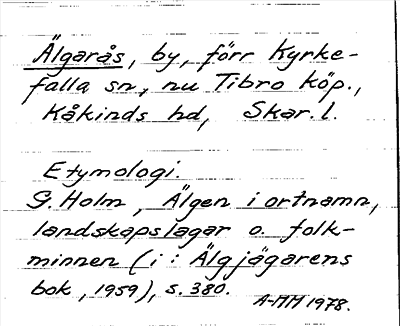 Älgarås, by, förr Kyrke-
falla sn, nu Tibro köp.,
Kåkinds hd, Skar. l.
Etymologi.
G. Holm, Älgen i ortnamn,
landskapslagar o. folk-
minnen (i: Älgjägarens
bok, 1959), s. 380.
A-MH 1978.